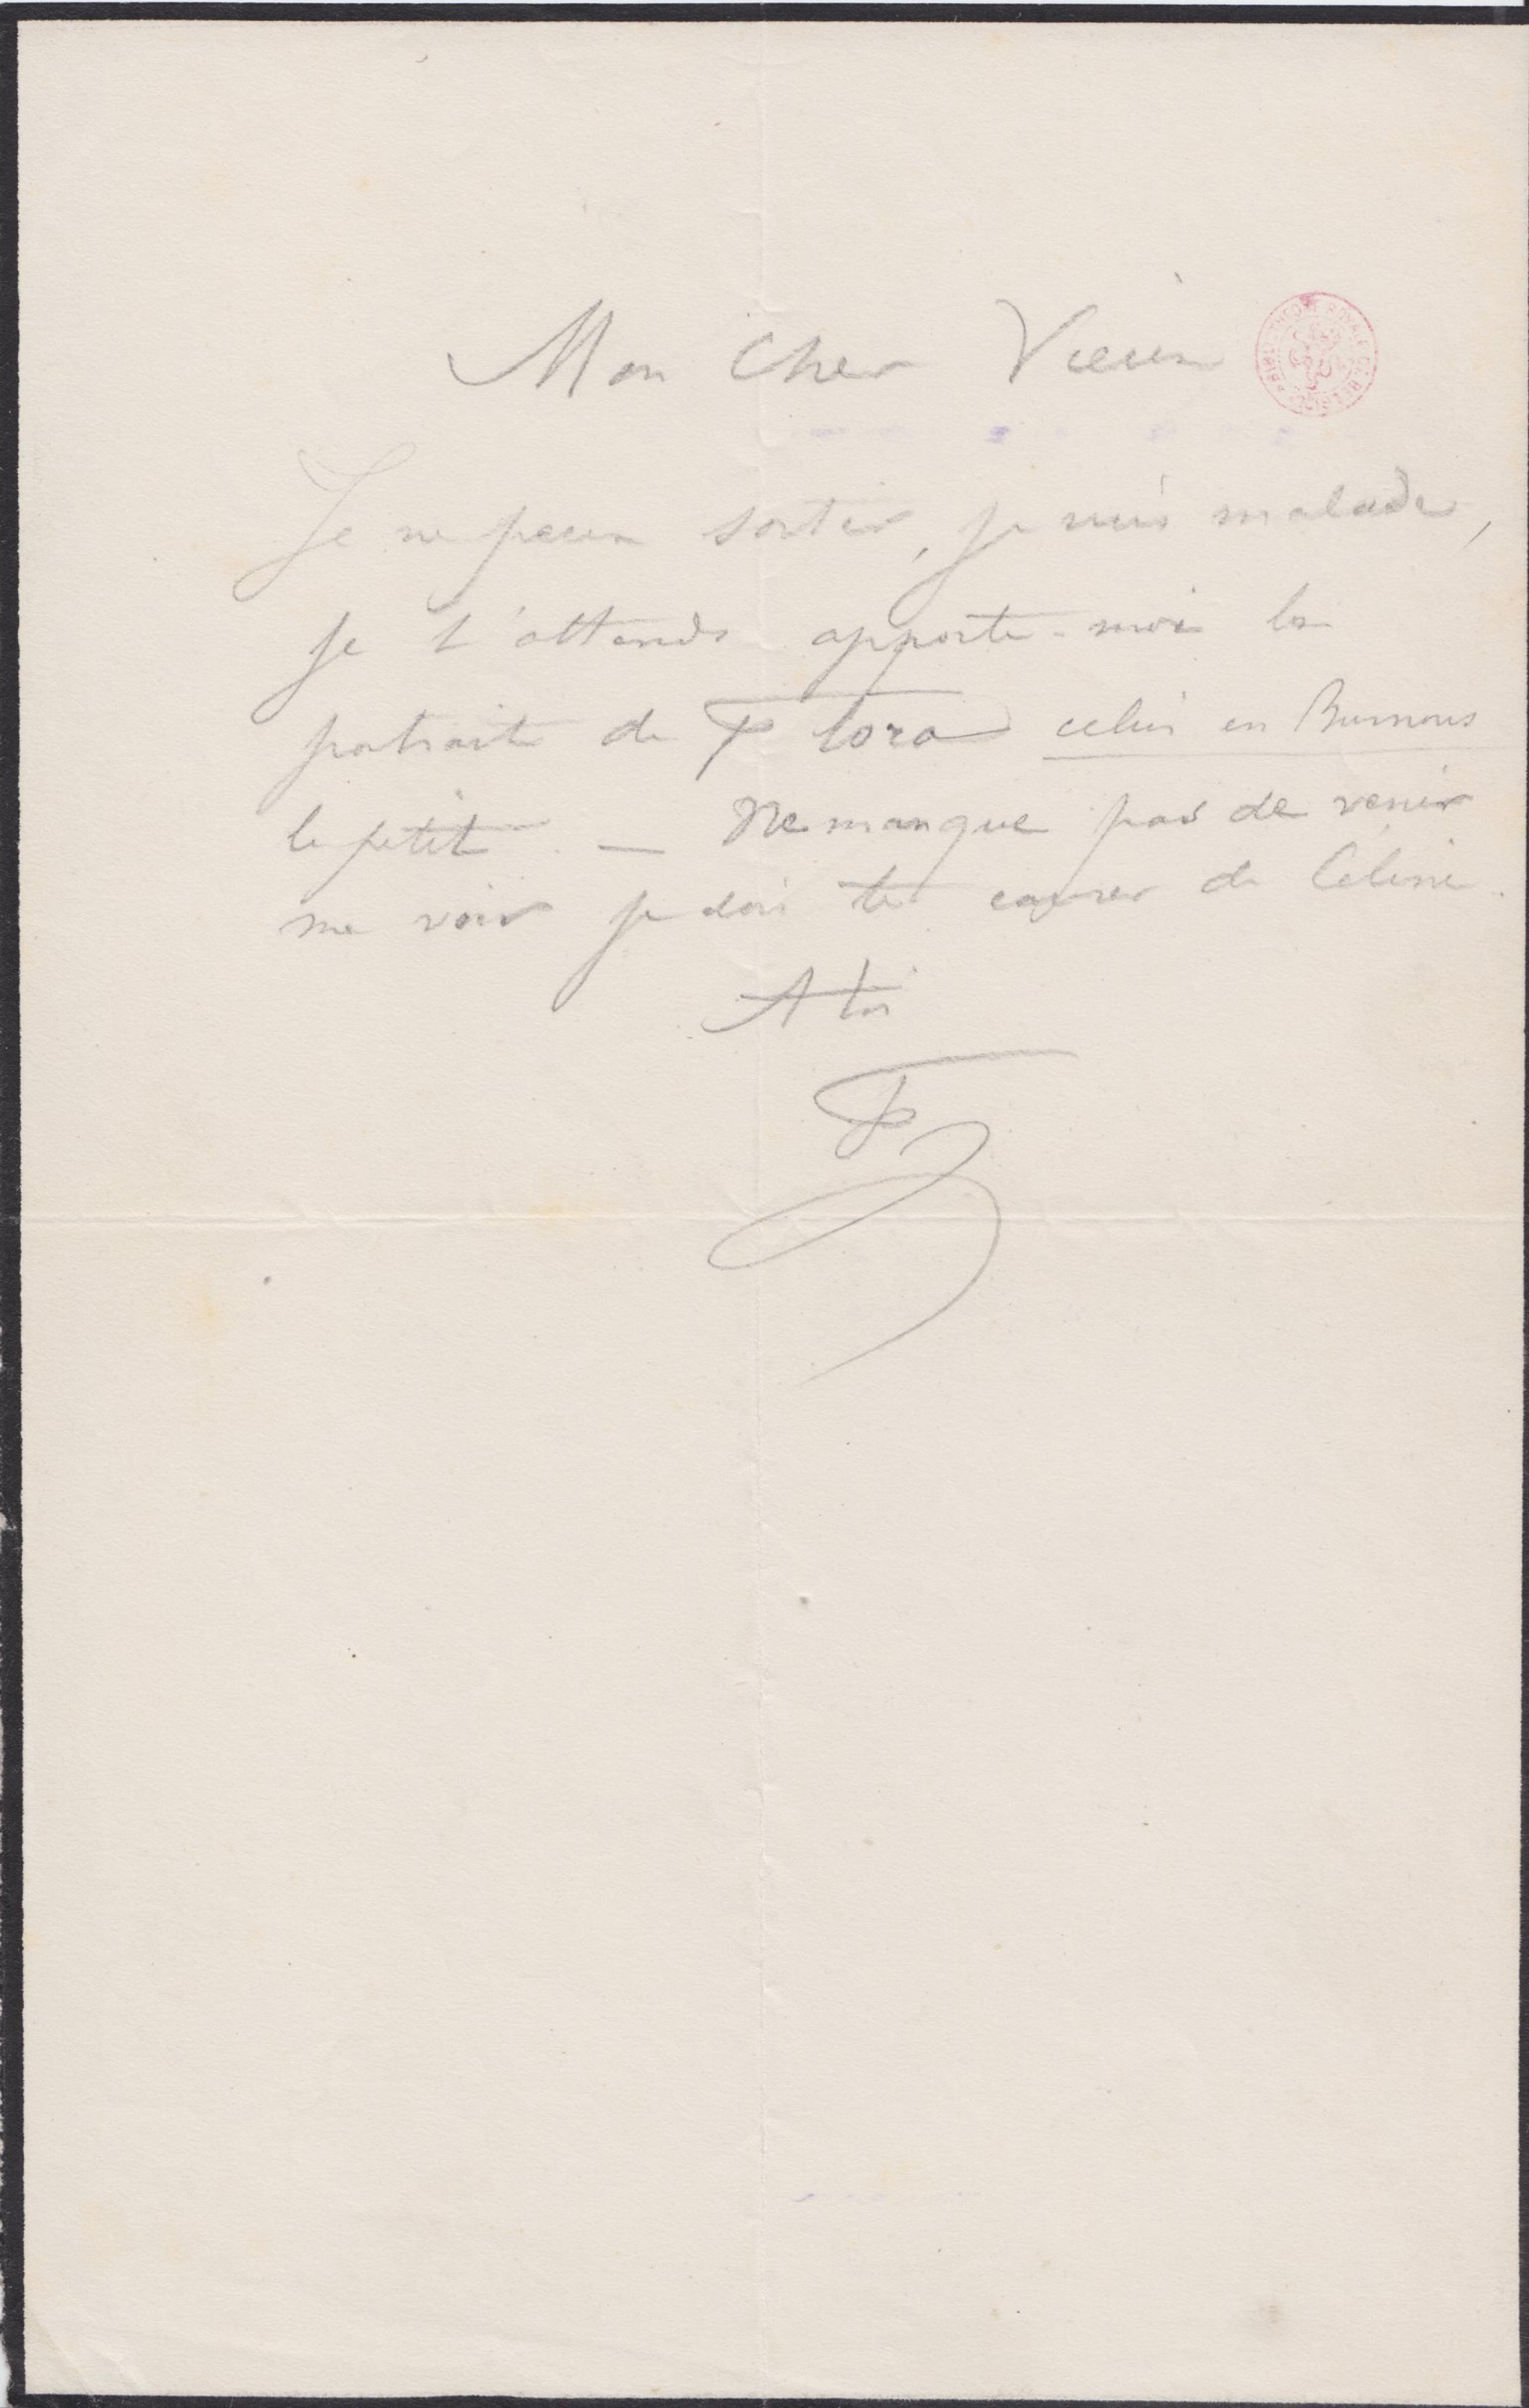 Mon Cher Vieux
BIBLIOTHÈQUE ROYALE DE BELGIQUE
Je ne peux sortir, je suis malade,
je t'attends apporte-moi le
portrait de Flora celui en Burnous
le petit. — Ne manque pas de venir
me voir je dois te causer de Céline.
A toi
F